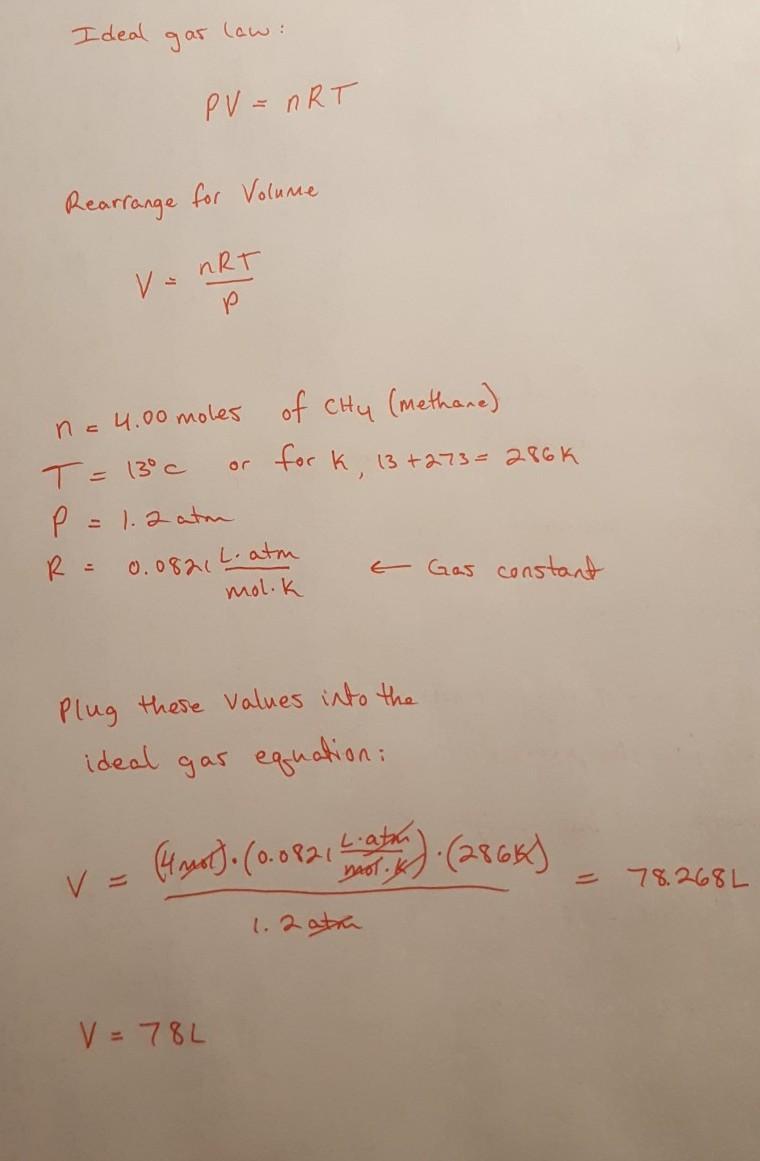 Ideal gas law:
PV = nRT
Rearrange for Volume
V = nRT/P
n = 4.00 moles of CH4 (methane)
T = 13°C or for K, 13 + 273 = 286K
P = 1.2 atm
R = 0.0821 L·atm/mol·K ← Gas constant
Plug these values into the
ideal gas equation:
V = (4 mol)·(0.0821 L·atm/mol·K)·(286K)/1.2 atm = 78.268L
V = 78L